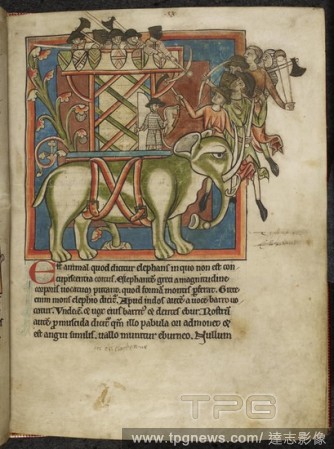 Est animal quod dicitur elephans in quo non est con
cupiscentia coitus. Elephantē greci a magnitudine
corporis uocatum putant, quod formā montis p̄ferat. Grece
enim mons eliphio dicit̄. Apud indos autē a uoce barro uo
catur. Vnde et uox eius barrit̄ et dentes ebur. Rostrū
autē pmuscida dicit̄ qm̄ illo pabula ori admouet et
est angui similis, uallo munitur eburneo. Nullum
TPG
www.tpgnews.com/ 達志影像